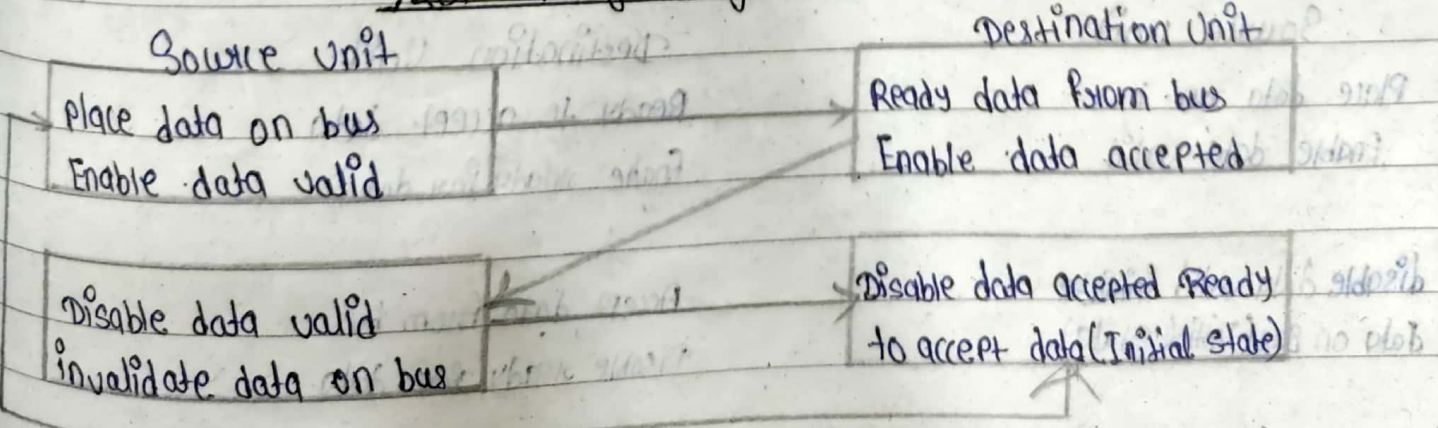 Source Unit
Destination Unit
Place data on bus
Enable data valid
Ready data from bus
Enable data accepted
Disable data valid
invalidate data on bus
Disable data accepted Ready
to accept data (Initial state)